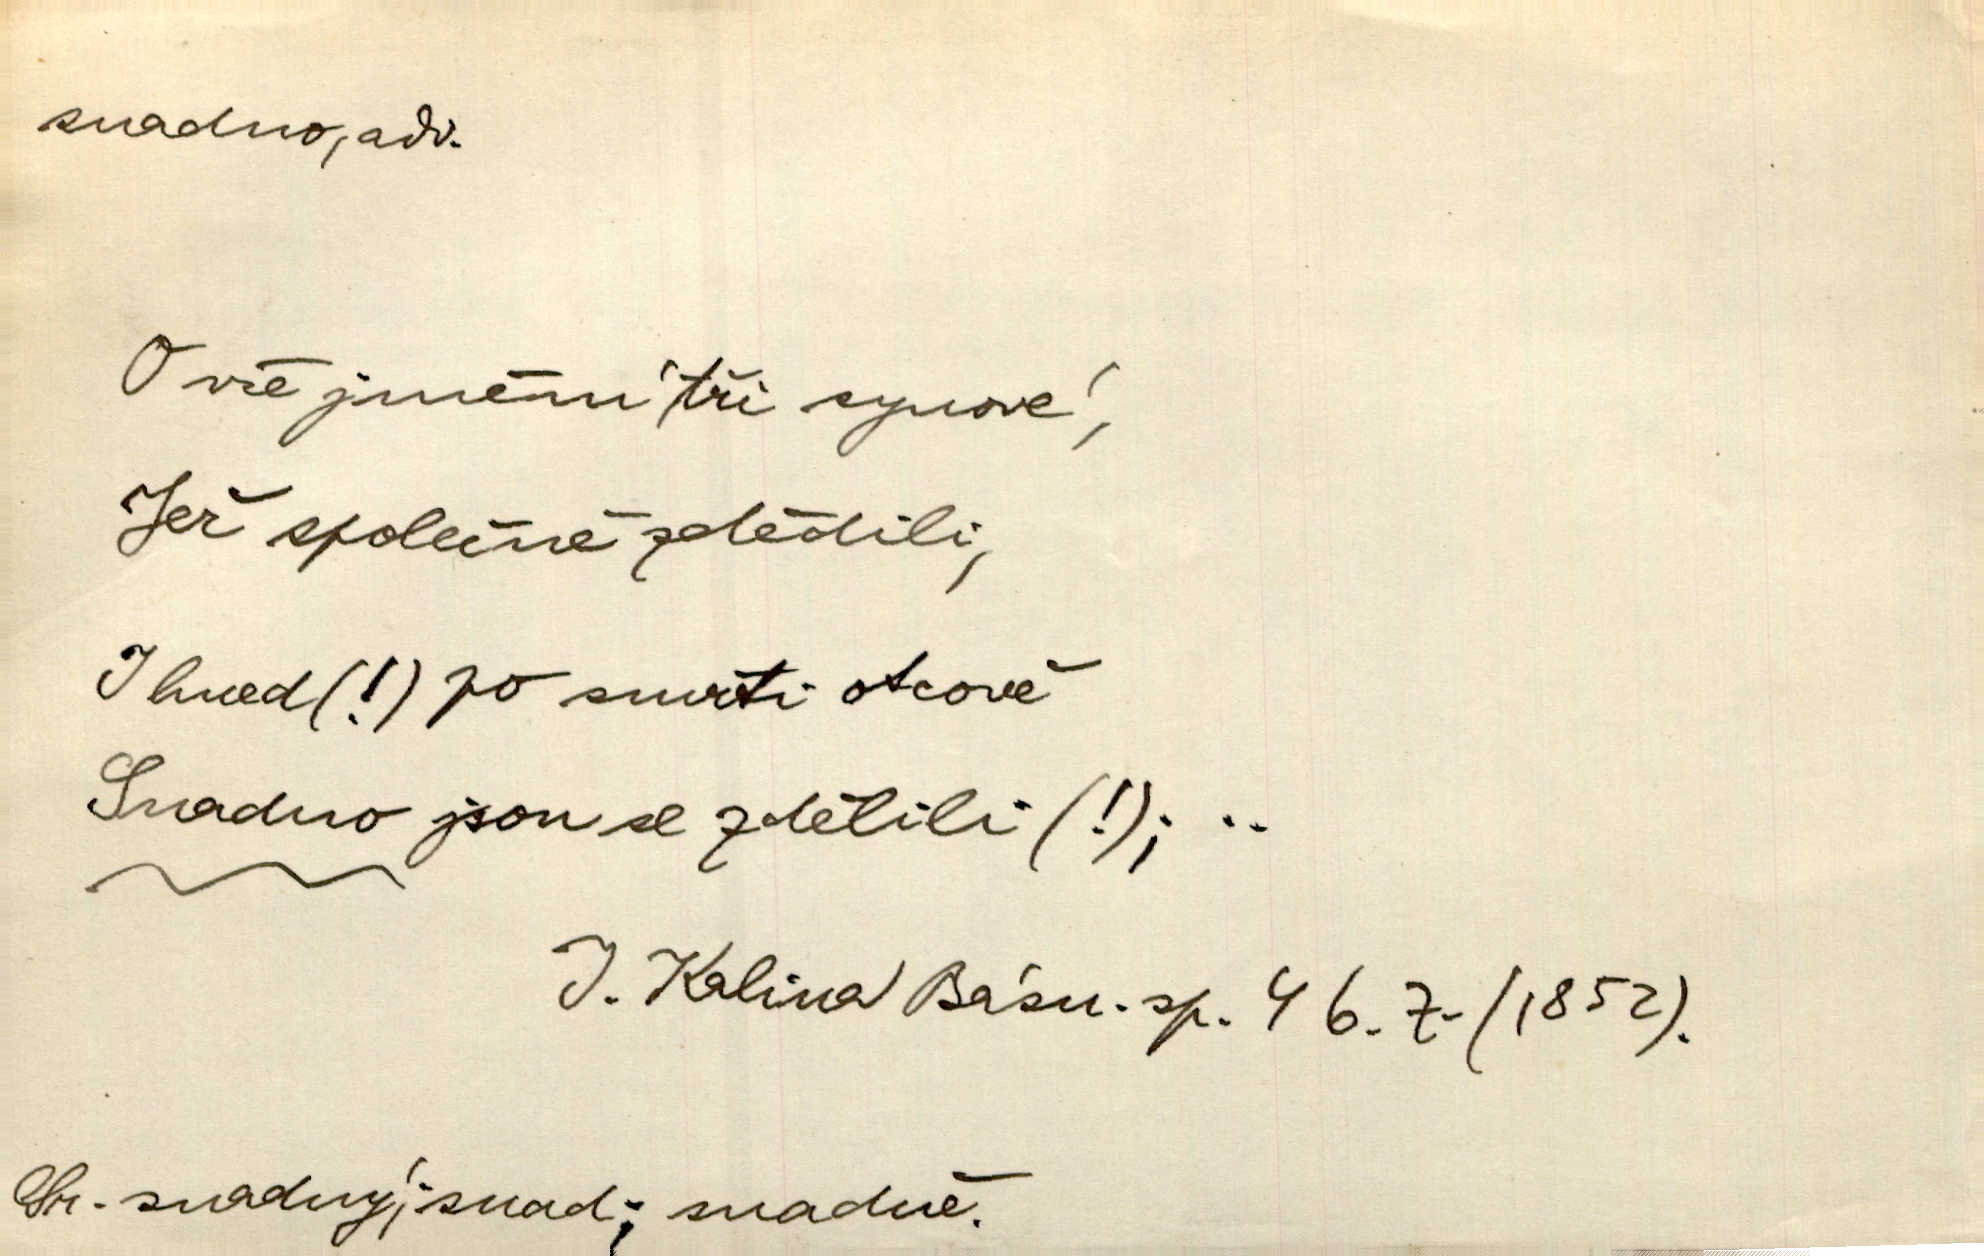 snadno, adv.
O vše jmění tři synové,
Jež společně zdědili,
Ihned (!) po smrti otcově
Snadno jsou se zdělili (!); ..
J. Kalina Básn. sp. 46. Z. (1852).
Sr. snadný; snad; snadně.